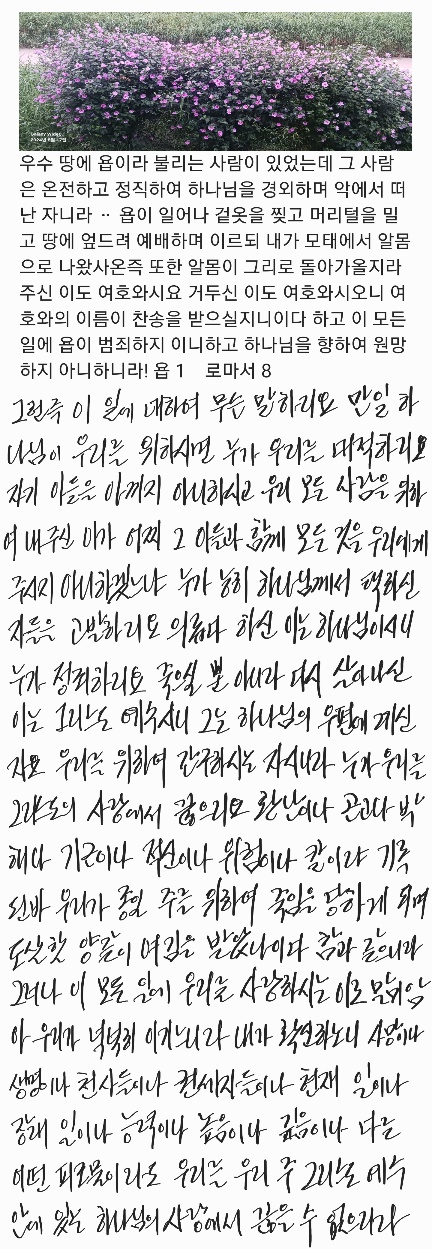 우수 땅에 욥이라 불리는 사람이 있었는데 그 사람
은 온전하고 정직하여 하나님을 경외하며 악에서 떠
난 자니라 ·· 욥이 일어나 겉옷을 찢고 머리털을 밀
고 땅에 엎드려 예배하며 이르되 내가 모태에서 알몸
으로 나왔사온즉 또한 알몸이 그리로 돌아가올지라
주신 이도 여호와시요 거두신 이도 여호와시오니 여
호와의 이름이 찬송을 받으실지니이다 하고 이 모든
일에 욥이 범죄하지 이니하고 하나님을 향하여 원망
하지 아니하니라! 욥 1 로마서 8
그런즉 이 일에 대하여 무슨 말하리요 만일 하
나님이 우리를 위하시면 누가 우리를 대적하리요
자기 아들을 아끼지 아니하시고 우리 모든 사람을 위하
여 내주신 이가 어찌 그 아들과 함께 모든 것을 우리에게
주시지 아니하겠느냐 누가 능히 하나님께서 택하신
자들을 고발하리요 의롭다 하신 이는 하나님이시니
누가 정죄하리요 죽으실 뿐 아니라 다시 살아나신
이는 그리스도 예수시니 그는 하나님의 우편에 계신
자요 우리를 위하여 간구하시는 자시니라 누가 우리를
그리스도의 사랑에서 끊으리요 환난이나 곤고나 박
해나 기근이나 적신이나 위험이나 칼이랴 기록
된바 우리가 종일 주를 위하여 죽임을 당하게 되며
도살할 양같이 여김을 받았나이다 함과 같으니라
그러나 이 모든 일에 우리를 사랑하시는 이로 말미암
아 우리가 넉넉히 이기느니라 내가 확신하노니 사망이나
생명이나 천사들이나 권세자들이나 현재 일이나
장래 일이나 능력이나 높음이나 깊음이나 다른
어떤 피조물이라도 우리를 우리 주 그리스도 예수
안에 있는 하나님의 사랑에서 끊을 수 없으리라